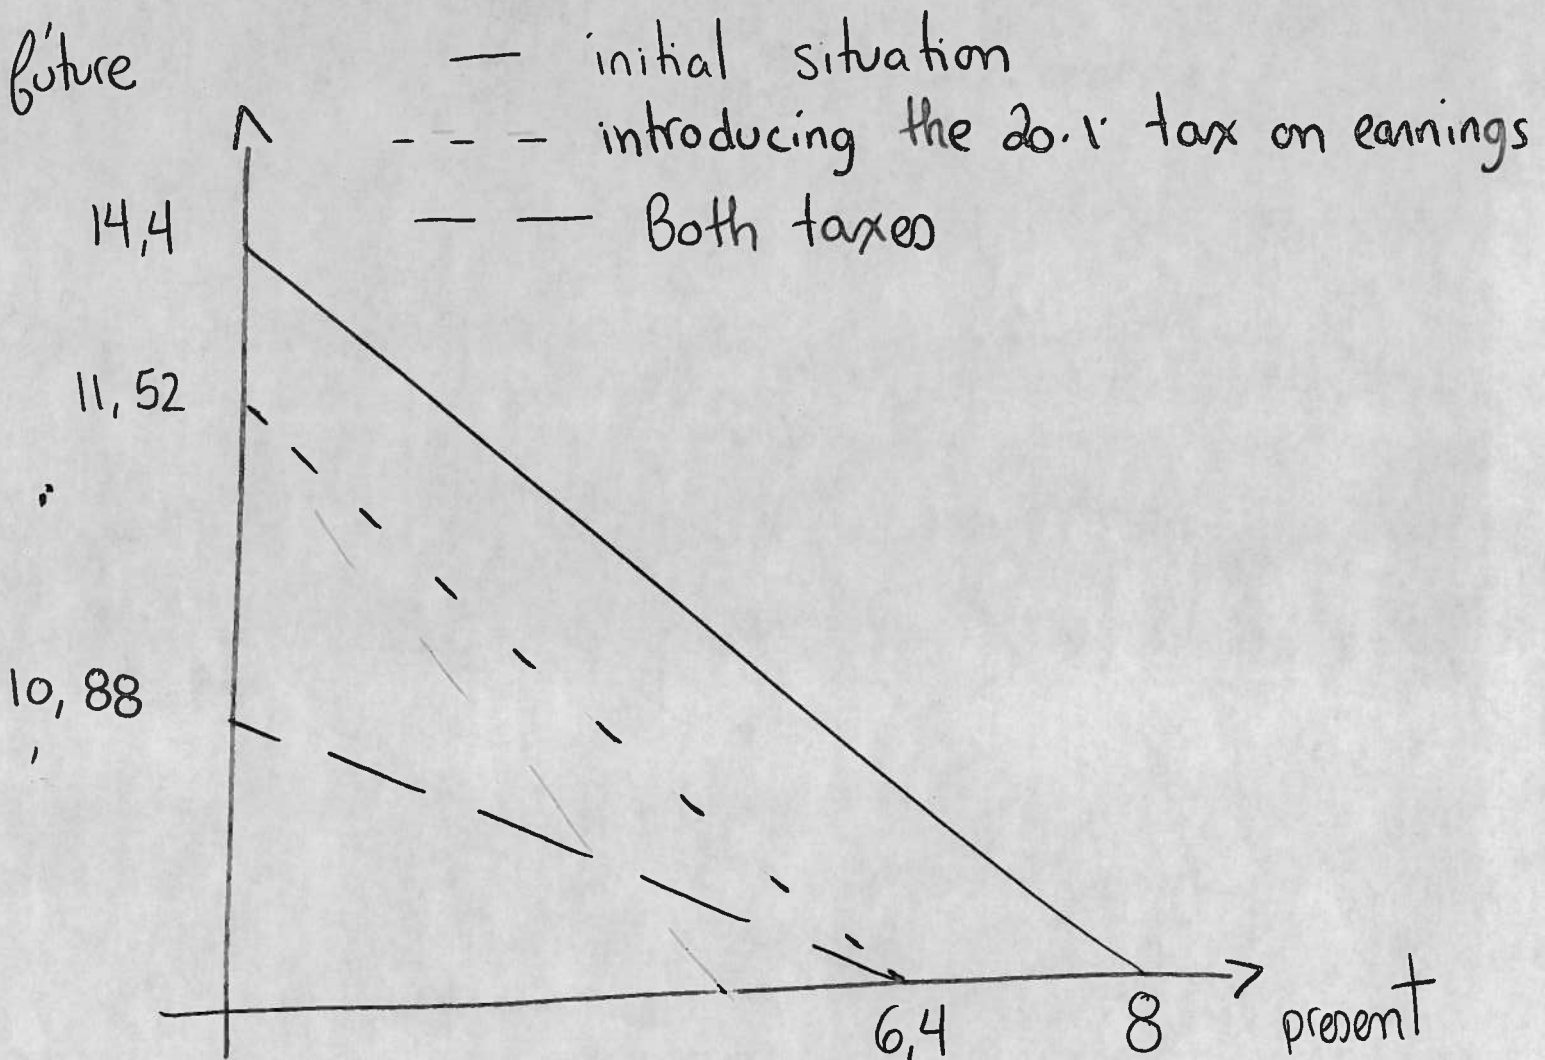 future
— initial situation
- - - introducing the 20% tax on earnings
14,4
— — Both taxes
11,52
10,88
6,4
8
present